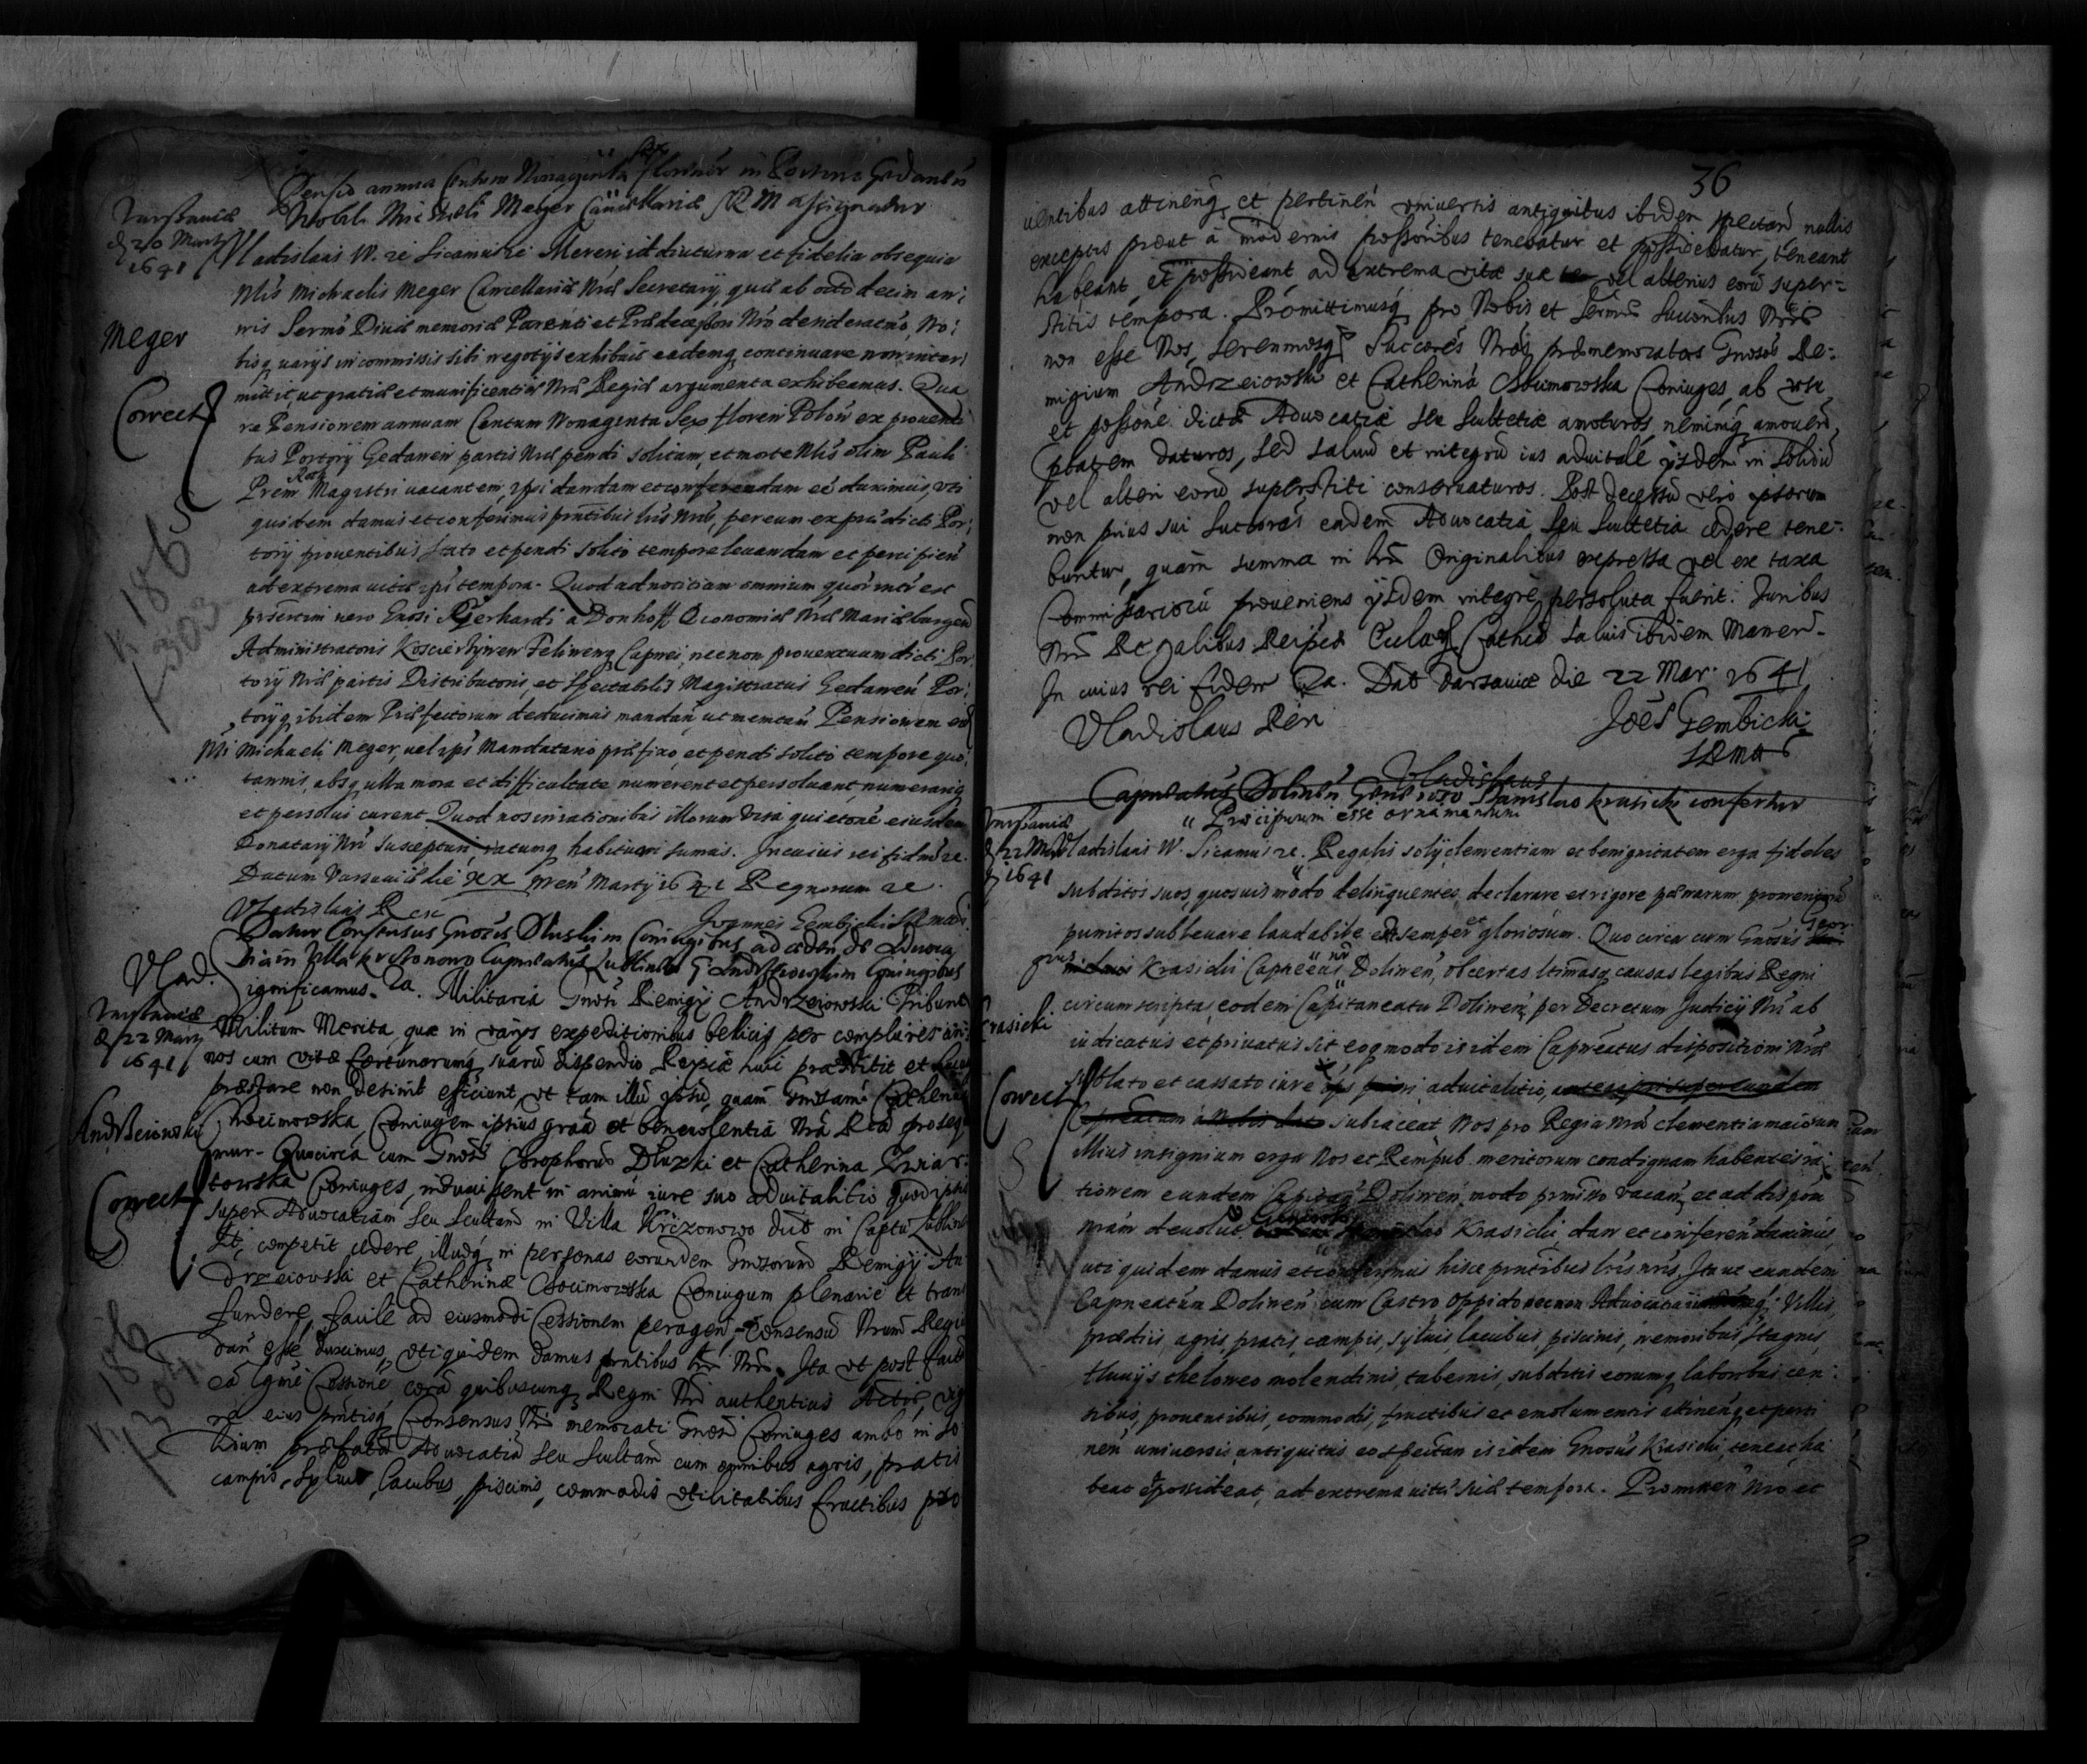 Pensio annua Centum Nonaginta sex florenor in Portorio Gedanen
Nobili Michaeli Meger Cancellariæ S R M assignatur
Varsaviæ
d 20 Marty
1641
Vladislaus W. re Sicamus re Mereri id diuturna et fidelia obsequia
Nlis Michaelis Meger Cancellariæ Nræ Secretary, quæ ab octodecim an:
Meger
nis Sermo Divæ memoriæ Parenti et Prædecessori Nro desideratmo, No:
bisq varys in commissis sibi negotys exhibuit eademq continuare non inter:
mittit, ut gratiæ et munificentiæ Nræ Regiæ argumenta exhibeamus. Qua
Correct
re Pensionem annuam Centum Nonaginta Sex floren Polon ex proventi
bus Portorij Gedanen partis Nræ pendi solitam, et morte Nlis olim Pauli
Prem Magistri vacantem, ipsi dandam et conferendam eē duximus, uti
quidem damus et conferimus pntibus lris Nris, per eum ex prædicti Por:
torij proventibus stato et pendi solito tempore levandam et percipien
ad extrema vitæ ipi tempora. Quod ad noticiam omnium quor intr est
prsertim vero Gnosi Gerhardi a Donhoff Œconomiæ Nræ Mariæburgen
Administratoris Koscierzynen Felinenq Capnei, necnon proventuum dicti Por
torij Nræ partis Distributoris, et Spectabilis Magistratus Gedanen Por:
torijq ibidem Præfectorum deducimus mandan, ut memtam Pensionem eid
Nli Michaeli Meger, vel ipi Mandatario præfixo, et pendi solito tempore quo:
tannis, absq ulla mora et difficultate numerent et persolvant, numerariq
et persolvi curent. Quod nos in rationibus illorum visa quietone eiusdem
Donatarij Nri suscepturi, ratumq habituri sumus. In cuius rei fidem re.
Datum Varsaviæ die XX Men Martij 1641 Regnorum re.
Vladislaus Rex
Joannes Gembicki SRM
Datur Consensus Gnosis Dluskim Coniugibus ad ceden de Advoca
tia in Villa Krzczonowo Capneatus Lublinen G Andrzeiowskim Coniugibus
Vlad.
ignificamus. Za. Militaria Gnosi Remigij Andrzeiowski Tribuni
Varsaviæ
d 22 Marty
1641
Militum Merita, quæ in varijs expeditionibus bellicis per complures an:
nos cum vitæ fortunarumq suarū dispendio Regiæ huic præstitit et
præstare non desinit efficiunt, ut tam illū ipsū, quam Gnosam Catherinā
Andrzeiowski
Osscimowska Coniugem ipsius gratia et benevolentiā Nrā Regiā prosequ
mur. Quocirca cum Gnosi Chrophorus Dluzki et Catherina
towska Coniuges, induxissent in animū iure suo advitalitio quod ipsis
Correct
super Advocatiam seu Scultetiā in Villa Krzczonowo dicta in Captu Lublinen
competit cedere, illudq in personas eorundem Gnosorum Remigij An
drzeiowski et Catherinæ Osscimowska Coniugum plenarie et trans
fundere, facile ad eiusmodi Cessionem peragen Consensū Nrum Regiū
dan esse duximus, uti quidem damus pntibus lris Nris. Ita ut post factā
ea lgme Cessione corā quibuscunq Regni Nri authenticis Actis, vig
re eius pntisq Consensus Nri memorati Gnosi Coniuges ambo in so
lidum præfatā Advocatiā seu Scultetiā cum omnibus agris, pratis
campis, sylvis, lacubus, piscinis, commodis utilitatibus fructibus pro
36
ventibus attinenq et pertinen universis antiquitus ibidem spectan nullis
exceptis prout a modernis possoribus tenebatur et possidebatur, teneant
habeant, et possideant, ad extrema vitæ suæ vel alterius eorū super:
stitis tempora. Promittimusq pro Nobis et Sermis Successoribus Nris
non esse Nos, Serenmosq Succores Nros præmemoratos Gnosos Re:
migium Andrzeiowski et Catherina Osscimowska Coniuges, ab usu
et possone dictæ Advocatiæ seu Scultetiæ amoturos, neminiq amovendi
ptatem daturos, sed salvū et integrū ius advitale ijsdem in solidū
vel alteri eorū superstiti conservaturos. Post decessū vero ipsorum
non prius sui Succores eadem Advocatia seu Scultetia cedere tene:
buntur, quam summa in lris Originalibus expressa vel ex taxa
Commissariorū proveniens ijsdem integre persoluta fuerit. Juribus
Nris Regalibus Reipcæ Eclæq Cathcæ salvis ibidem manen.
In cuius rei fidem Za. Dat Varsaviæ die 22 Mar. 1641
Vladislaus Rex
Joes Gembicki
Vladislaus
Capneatus Dolinen Generoso Stanislao Krasicki confertur
Præcipuum esse ornamentum
Varsaviæ
d 22 Mar
1641
Vladislaus W. Sicamus re. Regalis solij clementiam et benignitatem erga fideles
subditos suos, quosvis modo delinquentes declarare et rigore pænarum promerigtu
punitos sublevare laudabile et semper gloriosum. Quo circa cum Gnosus
Krasicki Capneus Dolinen, ob certas ltimasq causas legibus Regni
Krasicki
circumscripta, eodem Capitaneatu Dolinen, per Decretum Judicij Nri ab
iudicatus et privatus sit eoqmodo is idem Capneatus dispositioni Nræ
Correct
sublato et cassato iure advitalitio,
subiaceat. Nos pro Regia Nra clementia maiorum
illius insignium erga Nos et Rempub. meritorum condignam habentes ra:
tionem eundem Capneat Dolinen, modo prmisso vacan, et ad dispon
nram devolut Stanislao Krasicki, dan et conferen duximus,
uti quidem damus et conferimus hisce pntibus lris nris. Ita ut eundem
Capneatum Dolinen cum Castro Oppido necnon Advocatia, Villis,
prædiis, agris, pratis, campis, sylvis, lacubus, piscinis, nemoribus, stagnis,
fluvijs theloneo molendinis, tabernis, subditis eorumq laboribus cen:
sibus, proventibus, commodis, fructibus et emolumentis attinenq et perti
nen universis, antiquitus eo spectan is idem Gnosus Krasicki, teneat, ha
beat et possideat, ad extrema vitæ suæ tempora. Promitten Nro et